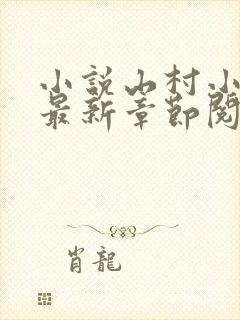 小說山村小
最新章節閱
肖龍